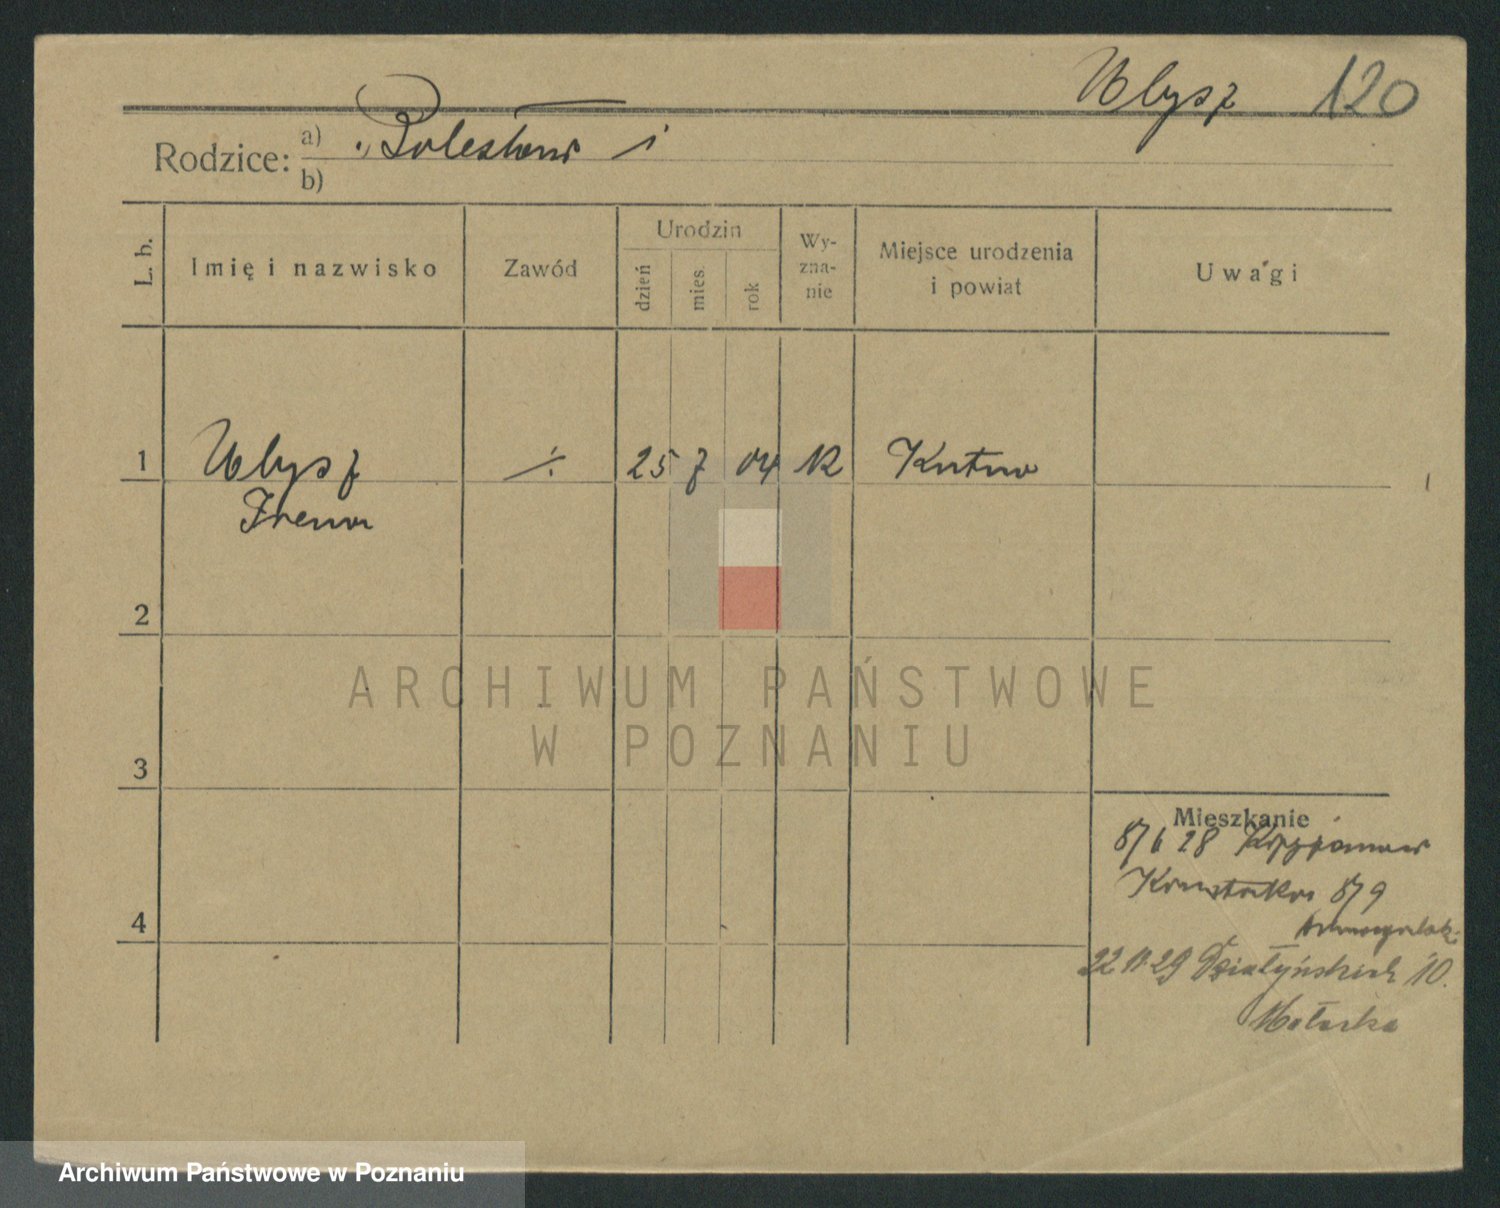 Ulysz 120
Rodzice: a) Bolesław i
b)
L. b.
Imię i nazwisko
Zawód
Urodzin
dzień
mies.
rok
Wy-
zna-
nie
Miejsce urodzenia
i powiat
Uwagi
1 Ulysz ·/. 25 7 04 R Kutno
Irena
2
3
4
ARCHIWUM PAŃSTWOWE
W POZNANIU
Mieszkanie
8/6 28
8/9
22 11.29 Działyńskich 10.
Archiwum Państwowe w Poznaniu